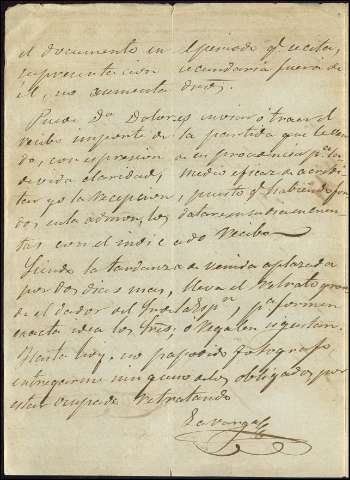 el documento en el periodo q.e cita,
representacion secundaria fuera de
el, no aumenta dros.
Puede D.a Dolores enviar ó traer el
recibo importe de la partida que
do, con expresion de su procedencia p.a la
devida claridad, medio eficaz de acredi
tar yo la recepcion, puesto q.e habiendo
dos, en la admon, los
tas con el indicado recibo
Siendo la tardanza de venida aplazada
por dos dias mas, lleva el retrato gran
de el dador del Sr. de la Esp.a, p.a formen
exacta idea los Sres, ó regalen si gustan.
Hasta hoy, no ha podido fotografo
entregarme ninguno de los obligados por
estar ocupado retratando
Lavarga